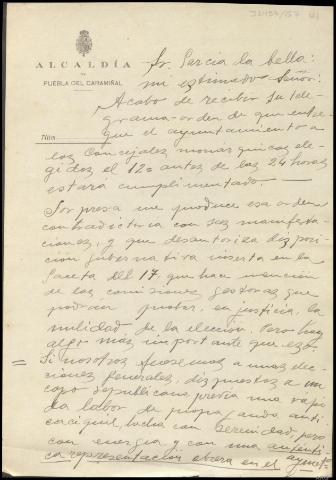 ALCALDÍA
DE
PUEBLA DEL CARAMIÑAL
Núm.
Sr. García la bella:
mi estimado Señor:
Acabo de recibir su tele-
grama-orden de que entre-
gue el ayuntamiento a
los Concejales monárquicos ele-
gidos el 12 antes de las 24 horas
estará cumplimentado.
Sorpresa me produce esa orden
contradictoria con sus manifesta-
ciones, y que desautoriza disposi-
ción gubernativa inserta en la
Gaceta del 17, que hace mención
de las comisiones gestoras que
podrán probar, en justicia, la
nulidad de la elección. Pero hay
algo mas importante que eso.
= Si nosotros fuesemos a unas elec-
ciones generales, dispuestos a un
copo republicano previa una rapi-
da labor de propaganda anti-
caciquil, lucha con serenidad, pero
con energia y con una autenti-
ca representación obrera en el ayunt-